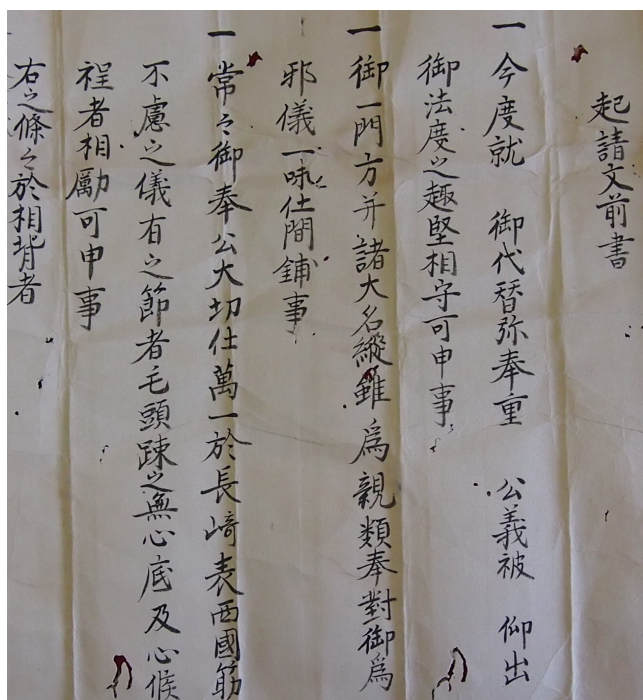 起請文前書
一今度就 御代替弥奉重 公義被 仰出
御法度之趣堅相守可申事
一御一門方并諸大名縦雖爲親類奉對御爲
邪儀一味仕間鋪事
一常々御奉公大切仕萬一於長﨑表西國筋
不慮之儀有之節者毛頭踈之無心底及心候
程者相勵可申事
右之條々於相背者